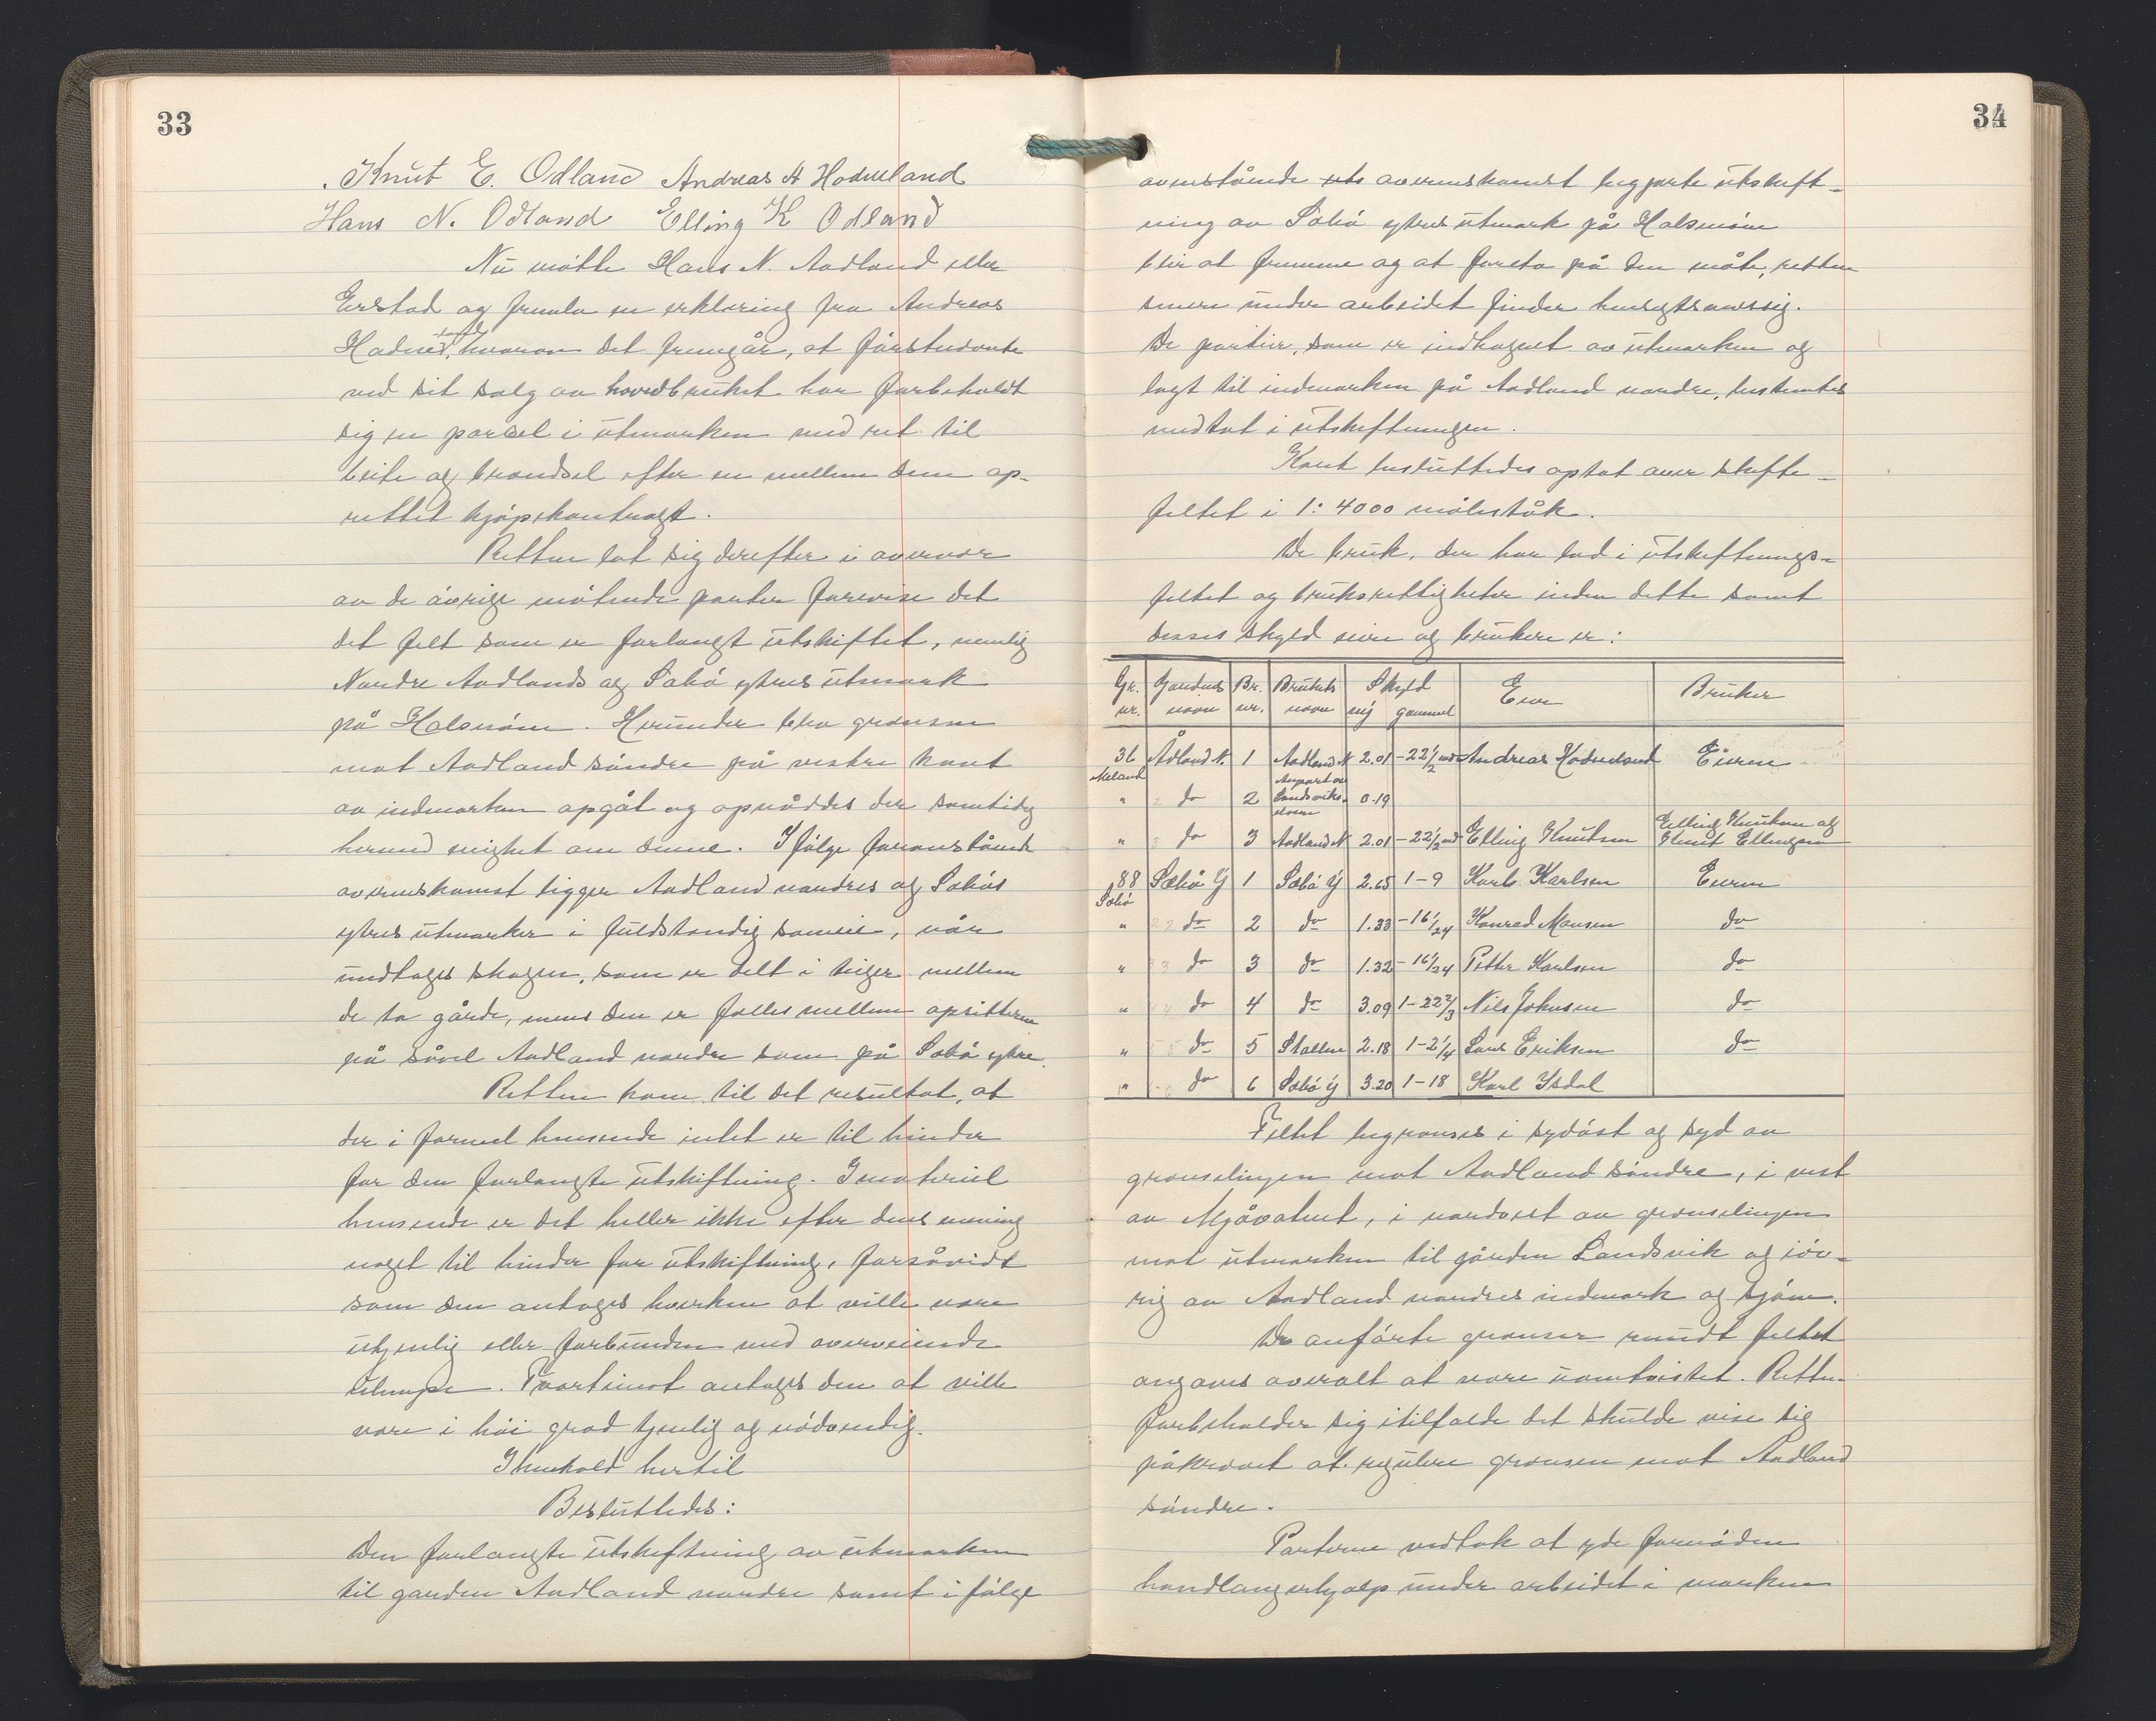 33
Knut E. Odland Andreas A Hodneland
Hans N. Odland Elling K Odland
Nu møtte Hans N. Aadland eller
Erstad og fremla en erklæring fra Andreas
Hodneland, hvorav det fremgår, at førstnævnte
ved sit salg av hovedbruket har forbeholdt
sig en parsel i utmarken med ret til
beite og brændsel efter en mellem dem op-
rettet kjøpekontrakt.
Retten lot sig derefter i overvær
av de øvrige møtende parter forevise det
det felt som er forlangt utskiftet, nemlig
Nordre Aadlands og Sæbø ytres utmark
på Holsnøen. Herunder blev grænsen
mot Aadland søndre på vestre kant
av indmarken opgåt og opnåddes der samtidig
herved enighet om denne. Ifølge foranstående
overenskomst ligger Aadland nordres og Sæbøs
ytres utmarker i fuldstændig sameie, når
undtages skogen, som er delt i teiger mellem
de to gårde, mens den er fælles mellem opsitterne
på såvel Aadland nordre som på Sæbø ytre.
Retten kom til det resultat, at
der i formel henseende intet er til hinder
for den forlangte utskiftning. I materiel
henseende er det heller ikke efter dens mening
noget til hinder for utskiftning, forsåvidt
som den antages hverken at ville være
utjenlig eller forbunden med overveiende
ulempe. Tvertimot antages den at ville
være i høi grad tjenlig og nødvendig.
I henhold hertil
Besluttedes:
Den forlangte utskiftning av utmarken
til gaarden Aadland nordre samt ifølge
34
ovenstående overenskomst begjærte utskift-
ning av Sæbø ytres utmark på Holsnøen
blir at fremme og at foreta på den måte, retten
senere under arbeidet finder hensigtsmæssig.
De partier, som er indhegnet av utmarken og
lagt til indmarken på Aadland nordre, bestemtes
medtat i utskiftningen.
Kart besluttedes optat over skifte-
feltet i 1:4000 målestok.
De bruk, der har lod i utskiftnings-
feltet og bruksrettigheter inden dette samt
disses skyld eiere og brukere er:
Gr. nr. Gaardens navn Br. nr. Brukets navn Skyld ny gammel Eier Bruker
36 Meland Ådland N. 1 Aadland N 2.01 -22 1/2 Andreas Hodneland Eieren
" do 2 Anpart av Landsviks 0.19
" do 3 Aadland N 2.01 -22 1/2 Elling Knutsen Elling Knutsen og Knut Ellingsen
88 Sæbø Sæbø Y 1 Sæbø Y 2.65 1-9 Karl Karlsen Eieren
" do 2 do 1.33 -16 1/24 Konrad Monsen do
" do 3 do 1.32 -16 1/24 Petter Karlsen do
" do 4 do 3.09 1-22 2/3 Nils Johnsen do
" do 5 Stallen 2.18 1-2 1/4 Lars Eriksen do
" do 6 Sæbø Y 3.20 1-18 Karl Isdal
Feltet begrænses i sydøst og syd av
grænselinjen mot Aadland søndre, i vest
av Mjåvatnet, i nordvest av grænselinjen
mot utmarken til gården Landsvik og iøv-
rig av Aadland nordres indmark og sjøen.
De anførte grænser rundt feltet
angaves overalt at være uomtvistet. Retten
forbeholder sig itilfælde det skulde vise sig
påkrævet at regulere grænsen mot Aadland
søndre.
Parterne vedtok at yde fornøden
handlangerhjælp under arbeidet i marken